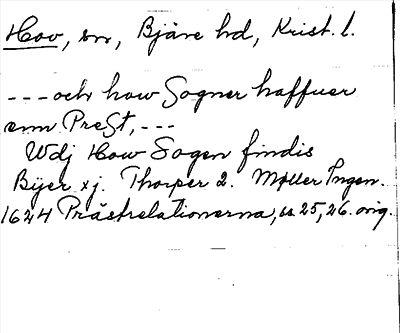 Hov, sn, Bjäre hd, Krist. l.
---och how Sogner haffuer
enn PreSt,---
Wdj How Sogen findis
Bÿer xj. Thorper 2. Møller Ingen.
1624 Prästrelationerna, ss 25, 26. orig.